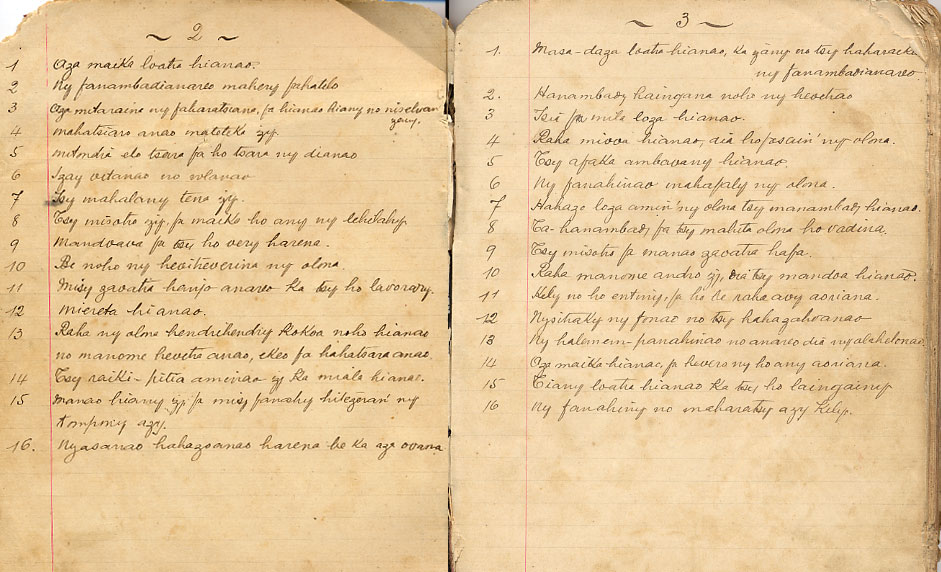 ~ 2 ~
1 Aza maika loatra hianao.
2 Ny fanambadianareo mahery
3 Aza mitaraina ny faharatsiana, fa hianao hiany no
zany.
4 mahatsiaro anao matetika izy.
5 mitondrà elo tsara fa ho tsara ny dianao
6 Izay vitanao no volavao
7 Tsy mahalany tena izy.
8 Tsy misotro izy, fa maika ho any ny lehilahy
9 Mandvava fa tsy ho very harena.
10 Be noho ny hevitreverina ny olona.
11 Misy zavatra anareo ka tsy ho lavorary.
12 miereta hianao.
13 Raha ny olona hendrihendry kokoa noho hianao
no manome hevitra anao, ekeo fa hahatsara anao.
14 Tsy raiki-pitia aminao izy ka miala hianao.
15 Manao hiany izy fa misy fanahy ny
tompiny azy.
16. Ny asanao hahazoanao harena be ka aza ovana
~ 3 ~
1. Masa-daza loatra hianao, ka zany no tsy haharaika
ny fanambadianareo
2. Hanambady haingana noho ny hevitrao
3 fa mila loza hianao.
4 Raha miova hianao, dia ho ny olona.
5 Tsy afaka ambavany hianao.
6 Ny fanahinao mahafaly ny olona.
7 Hahazo loza amin'ny olona tsy manambady hianao.
8 Ta-hanambady fa tsy mahita olona ho vadina.
9 Tsy misotro fa manao zavatra hafa.
10 Raha manome andro izy, dia tsy mandoa hianao.
11 Kely no ho entiny, fa ho be raha avy aoriana.
12 Ny sitraky ny fonao no tsy hahazahoanao
13 Ny halemem-panahinao no anareo dia ny alahelonao
14 Aza maika hianao, fa ny ho any aoriana.
15 Tiany loatra hianao ka tsy ho laingainy
16 Ny fanahiny no maharatsy azy kely.